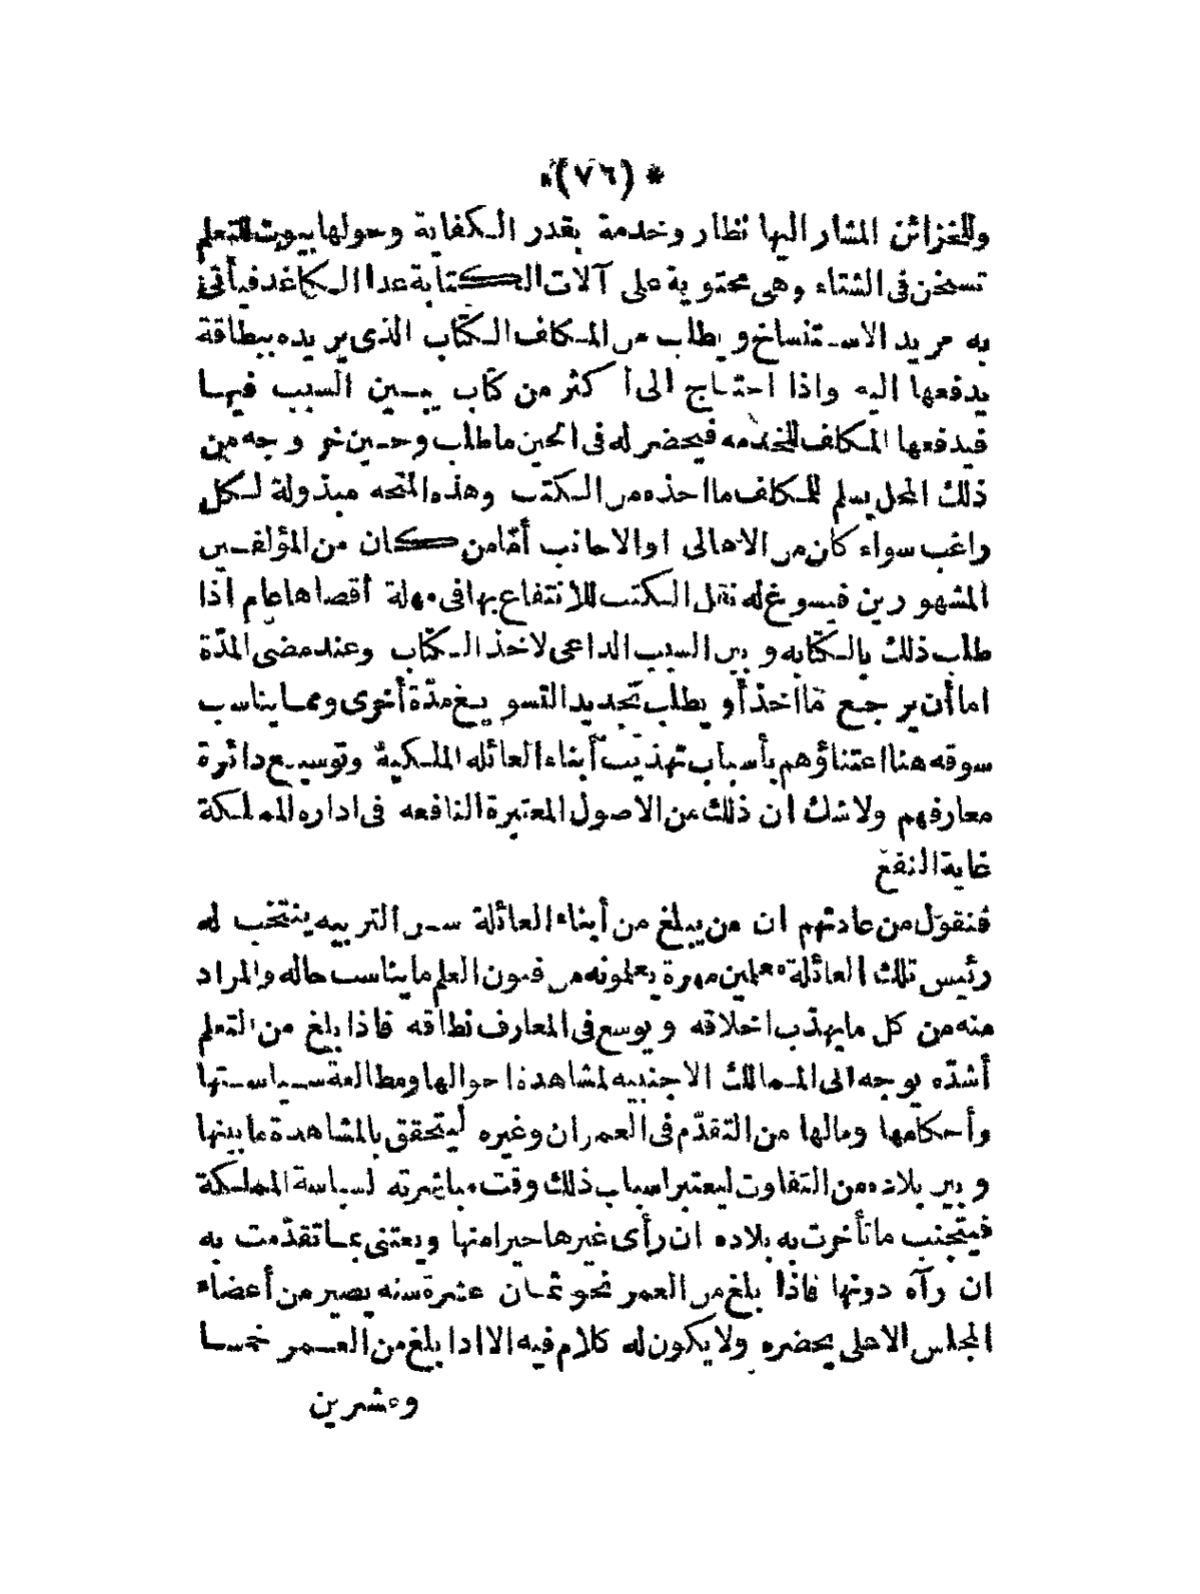 * (٧٦) *
وللخزائن المشار اليها نظار وخدمة بقدر الكفاية وحولها بيوت للتعلم
تسخن فى الشتاء وهى محتوية على آلات الكتابة عدا الكاغد فيأتى
به مريد الاستنساخ ويطلب من المكلف الكتاب الذى يريده ببطاقة
يدفعها اليه واذا احتاج الى أكثر من كتاب يبين السبب فيها
فيدفعها المكلف للخدمه فيحضر له فى الحين ما طلب وحين خروجه من
ذلك المحل يسلم للمكلف ما اخذه من الكتب وهذه المنحه مبذولة لكل
راغب سواء كان من الاهالى او الاجانب أمّا من كان من المؤلفين
المشهورين فيسوغ له نقل الكتب للانتفاع بها فى مهلة أقصاها عام اذا
طلب ذلك بالكتابه وبين السبب الداعى لاخذ الكتاب وعند مضى المدّة
اما أن يرجع ما اخذ أو يطلب تجديد التسويغ مدّة أخرى ومما يناسب
سوقه هنا اعتناؤهم بأسباب تهذيب أبناء العائله الملكية وتوسيع دائرة
معارفهم ولا شك ان ذلك من الاصول المعتبرة النافعه فى اداره المملكة
غاية النفع
فنقول من عادتهم ان من يبلغ من أبناء العائلة سن التربيه ينتخب له
رئيس تلك العائلة معلمين مهرة يعلمونه من فنون العلم ما يناسب حاله والمراد
منه من كل ما يهذب اخلاقه ويوسع فى المعارف نطاقه فاذا بلغ من التعلم
أشدّه يوجه الى الممالك الاجنبيه لمشاهدة احوالها ومطالعة سياستها
وأحكامها ومالها من التقدّم فى العمران وغيره ليتحقق بالمشاهدة ما بينها
وبين بلاده من التفاوت ليعتبر اسباب ذلك وقت مباشرته لسياسة المملكة
فيتجنب ما تأخرت به بلاده ان رأى غيرها خيرا منها ويعتنى بما تقدّمت به
ان رآه دونها فاذا بلغ من العمر نحو ثمان عشرة سنه يصير من أعضاء
المجلس الاعلى يحضره ولا يكون له كلام فيه الا اذا بلغ من العمر خمسا
وعشرين